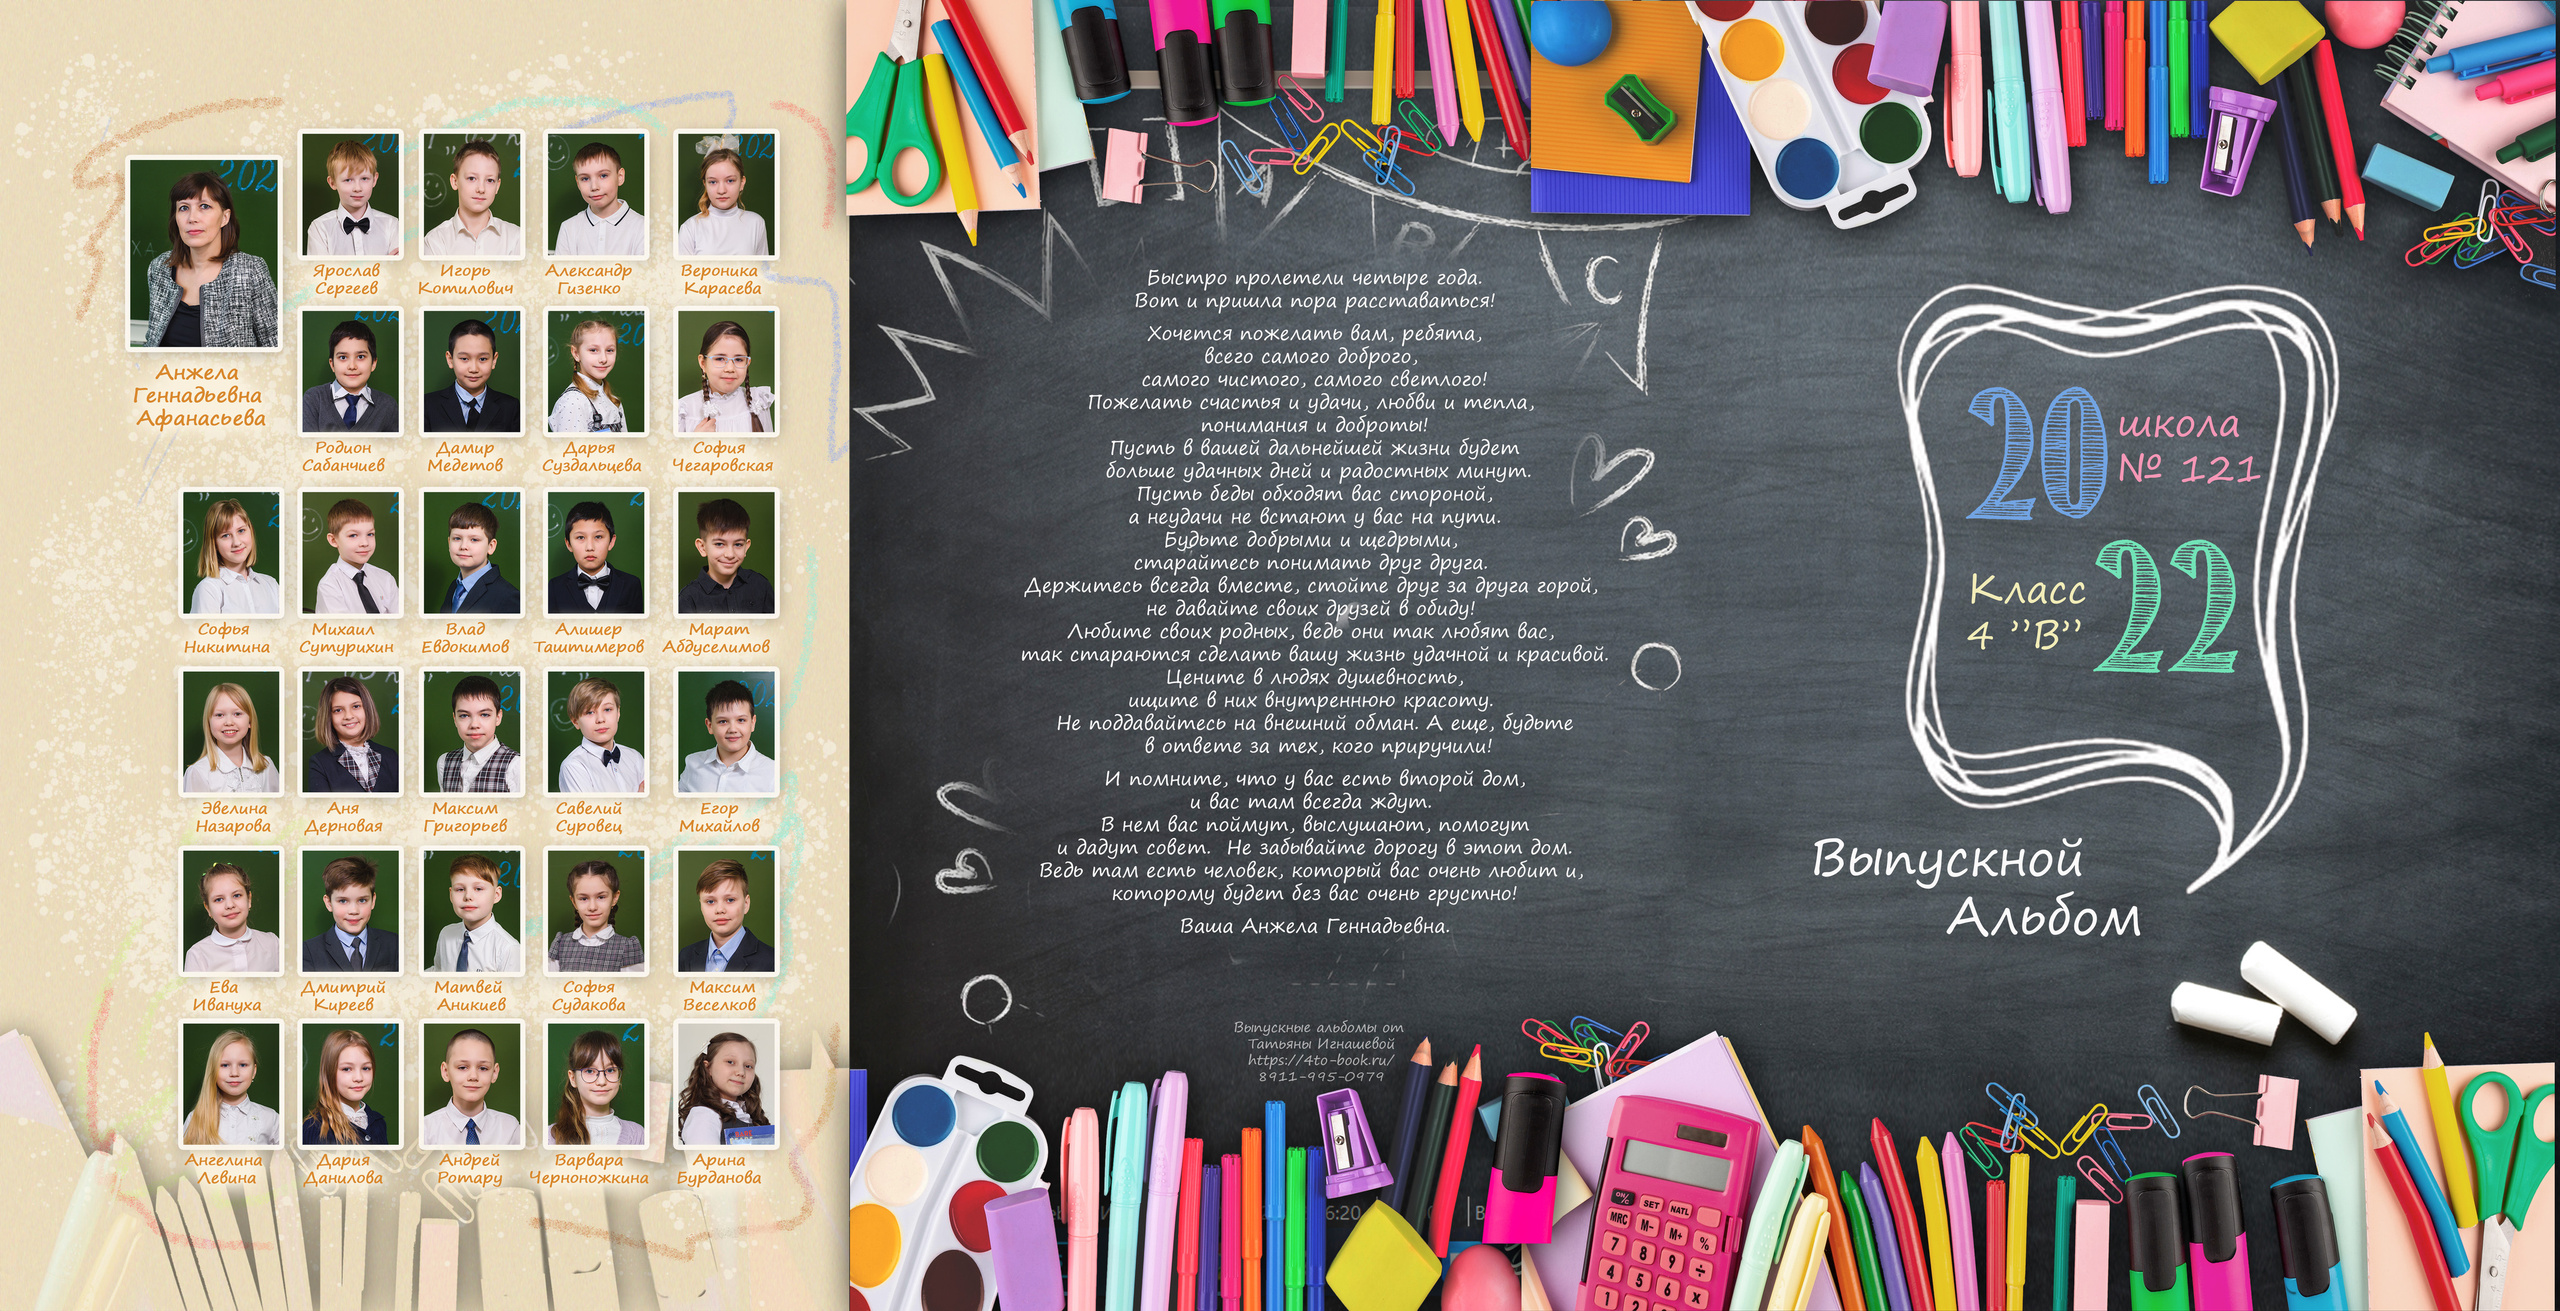 Анжела
Геннадьевна
Афанасьева
Ярослав
Сергеев
Игорь
Котилович
Александр
Гизенко
Вероника
Карасева
Родион
Сабанчиев
Дамир
Медетов
Дарья
Суздальцева
София
Чегаровская
Софья
Никитина
Михаил
Сутурихин
Влад
Евдокимов
Алишер
Таштимеров
Марат
Абдуселимов
Эвелина
Назарова
Аня
Дерновая
Максим
Григорьев
Савелий
Суровец
Егор
Михайлов
Ева
Ивануха
Дмитрий
Киреев
Матвей
Аникиев
Софья
Судакова
Максим
Веселков
Ангелина
Левина
Дария
Данилова
Андрей
Ротару
Варвара
Черноножкина
Арина
Бурданова
Быстро пролетели четыре года.
Вот и пришла пора расставаться!
Хочется пожелать вам, ребята,
всего самого доброго,
самого чистого, самого светлого!
Пожелать счастья и удачи, любви и тепла,
понимания и доброты!
Пусть в вашей дальнейшей жизни будет
больше удачных дней и радостных минут.
Пусть беды обходят вас стороной,
а неудачи не встают у вас на пути.
Будьте добрыми и щедрыми,
старайтесь понимать друг друга.
Держитесь всегда вместе, стойте друг за друга горой,
не давайте своих друзей в обиду!
Любите своих родных, ведь они так любят вас,
так стараются сделать вашу жизнь удачной и красивой.
Цените в людях душевность,
ищите в них внутреннюю красоту.
Не поддавайтесь на внешний обман. А еще, будьте
в ответе за тех, кого приручили!
И помните, что у вас есть второй дом,
и вас там всегда ждут.
В нем вас поймут, выслушают, помогут
и дадут совет. Не забывайте дорогу в этот дом.
Ведь там есть человек, который вас очень любит и,
которому будет без вас очень грустно!
Ваша Анжела Геннадьевна.
Выпускные альбомы от
Татьяны Игнашевой
https://4to-book.ru/
8911-995-0979
20 школа
№ 121
Класс 22
4 ’’В’’
Выпускной
Альбом
ON/C SET NATL
MRC M- M+ %
7 8 9 ÷
4 5 6 x
1 2